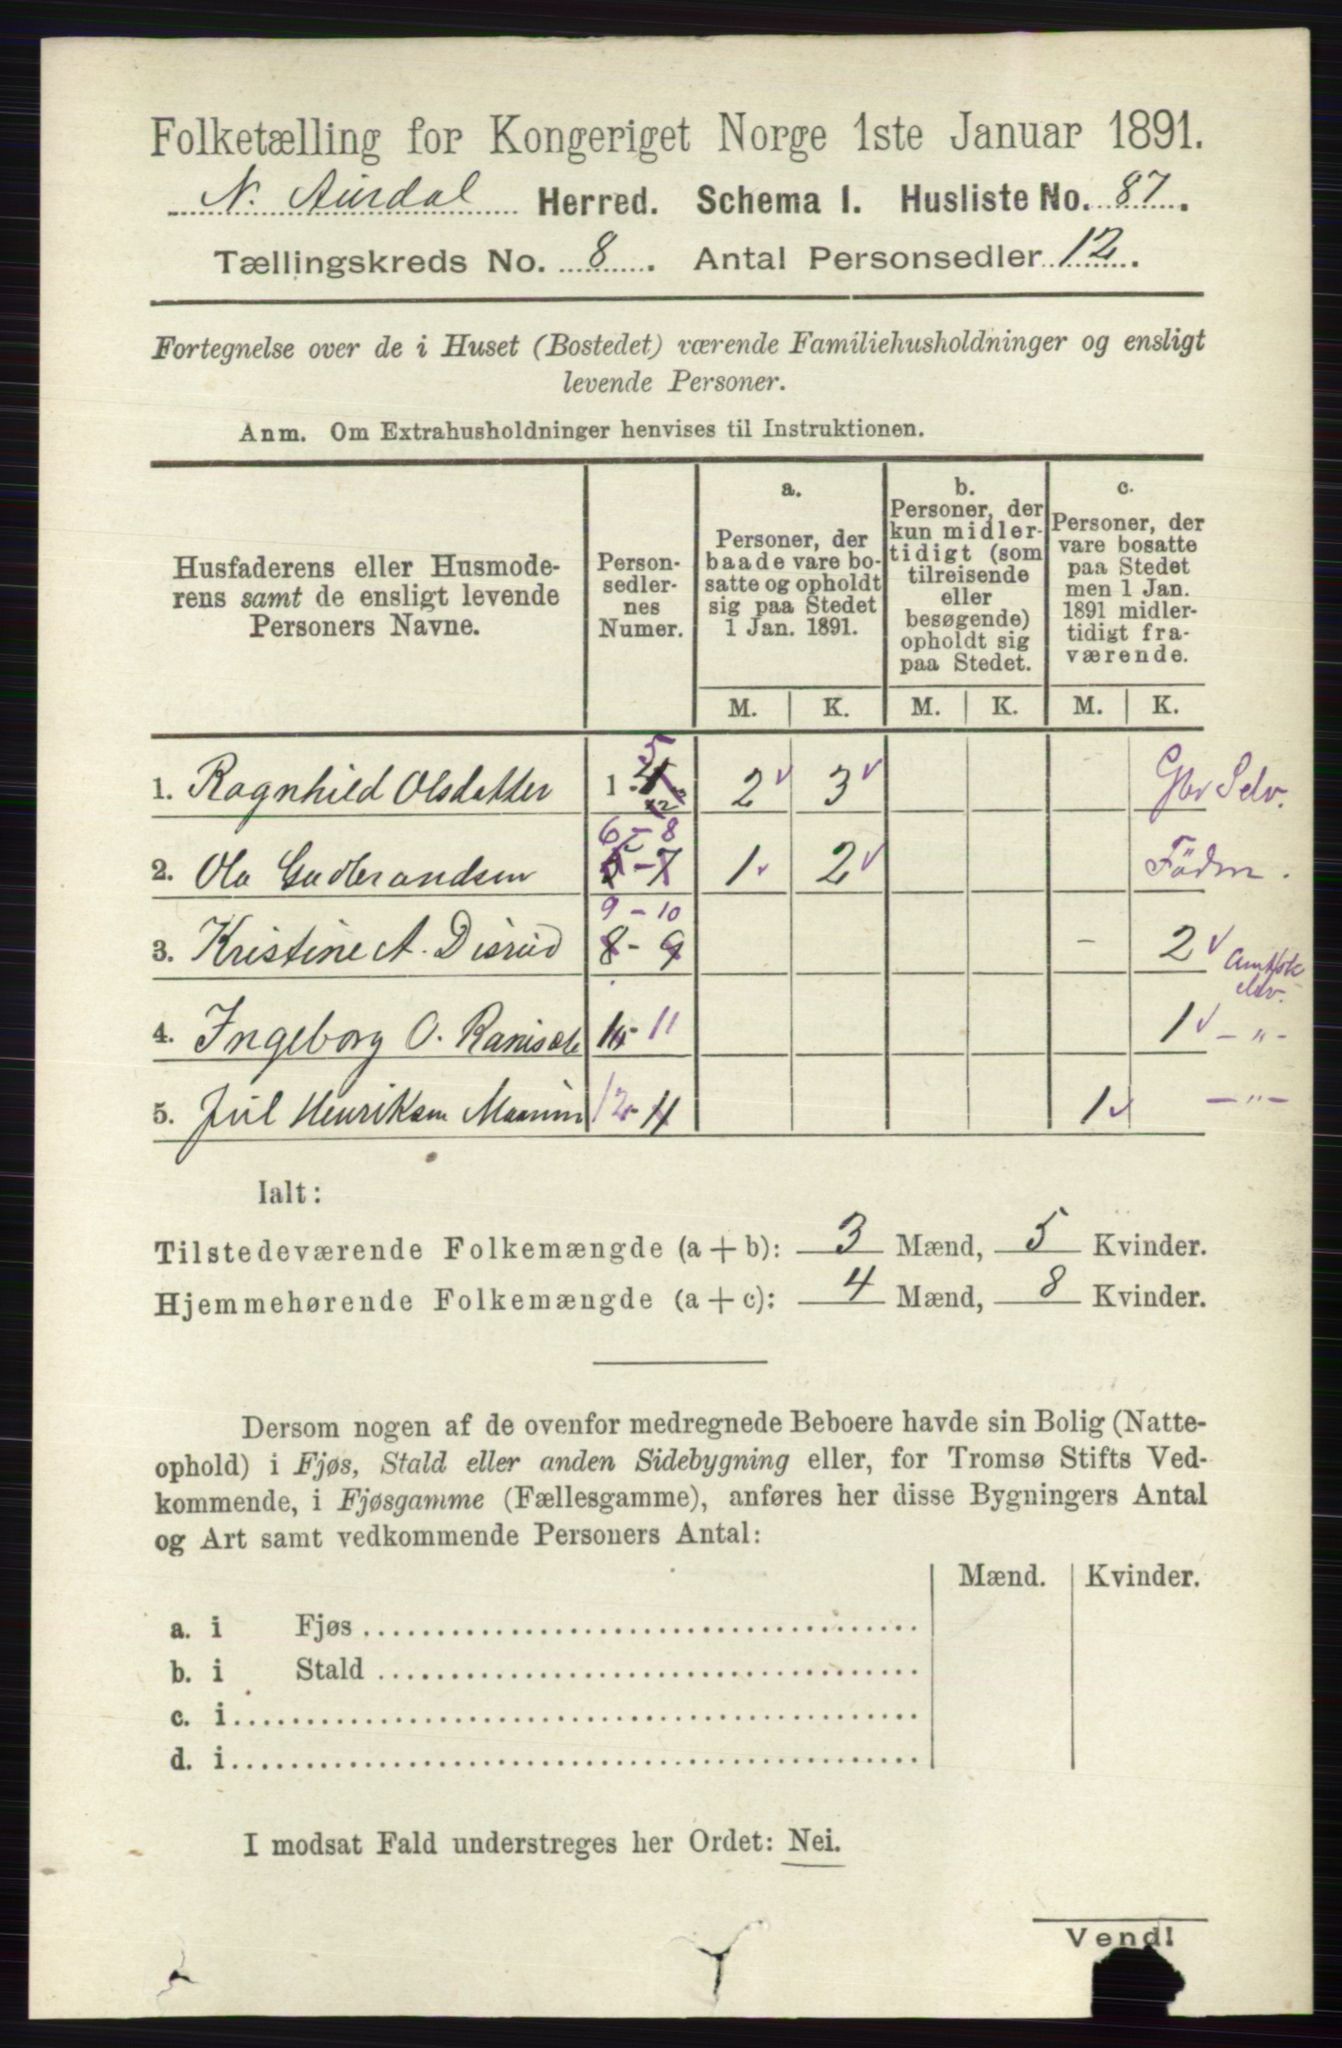 Folketælling for Kongeriget Norge 1ste Januar 1891.
N. Aurdal Herred. Schema I. Husliste No. 87.
Tællingskreds No. 8. Antal Personsedler 12.
Fortegnelse over de i Huset (Bostedet) værende Familiehusholdninger og ensligt
levende Personer.
Anm. Om Extrahusholdninger henvises til Instruktionen.
Husfaderens eller Husmode-
rens samt de ensligt levende
Personers Navne.
Person-
sedler-
nes
Numer.
a.
Personer, der
baade vare bo-
satte og opholdt
sig paa Stedet
1 Jan. 1891.
b.
Personer, der
kun midler-
tidigt (som
tilreisende
eller
besøgende)
opholdt sig
paa Stedet.
c.
Personer, der
vare bosatte
paa Stedet
men 1 Jan.
1891 midler-
tidigt fra-
værende.
M. K. M. K. M. K.
1. Ragnhild Olsdatter 1 - 5 2 3 Gbr Selv.
6 - 8
2. Ola Gudbrandsen 5 - 7 1 2
9 - 10
3. Kristine A. Disrud 8 - 9 - 2
4. Ingeborg O. 10 11 1 - " -
5. Juul Henriksen 12 11 1 - " -
Ialt:
Tilstedeværende Folkemængde (a + b): 3 Mænd, 5 Kvinder.
Hjemmehørende Folkemængde (a + c): 4 Mænd, 8 Kvinder.
Dersom nogen af de ovenfor medregnede Beboere havde sin Bolig (Natte-
ophold) i Fjøs, Stald eller anden Sidebygning eller, for Tromsø Stifts Ved-
kommende, i Fjøsgamme (Fællesgamme), anføres her disse Bygningers Antal
og Art samt vedkommende Personers Antal:
Mænd. Kvinder.
a. i Fjøs
b. i Stald
c. i
d. i
I modsat Fald understreges her Ordet: Nei.
Vend!